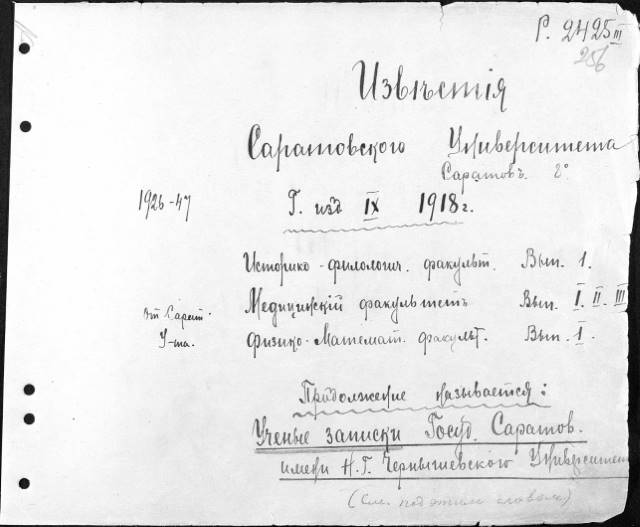 Р. 2425 III
256
Извѣстія
Саратовского Университета
Саратовъ. 8°
1926-47
Г. изд IX 1918 г.
Историко-филологич. факульт. Вып. 1.
Медицинскій факультетъ Вып. I. II. III
Сарат.
У-та.
Физико-Математ. факульт. Вып. I.
Продолжение называется:
Ученые записки Госуд. Саратов.
имени Н.Г. Чернышевского Университет
(См. под этими словами)